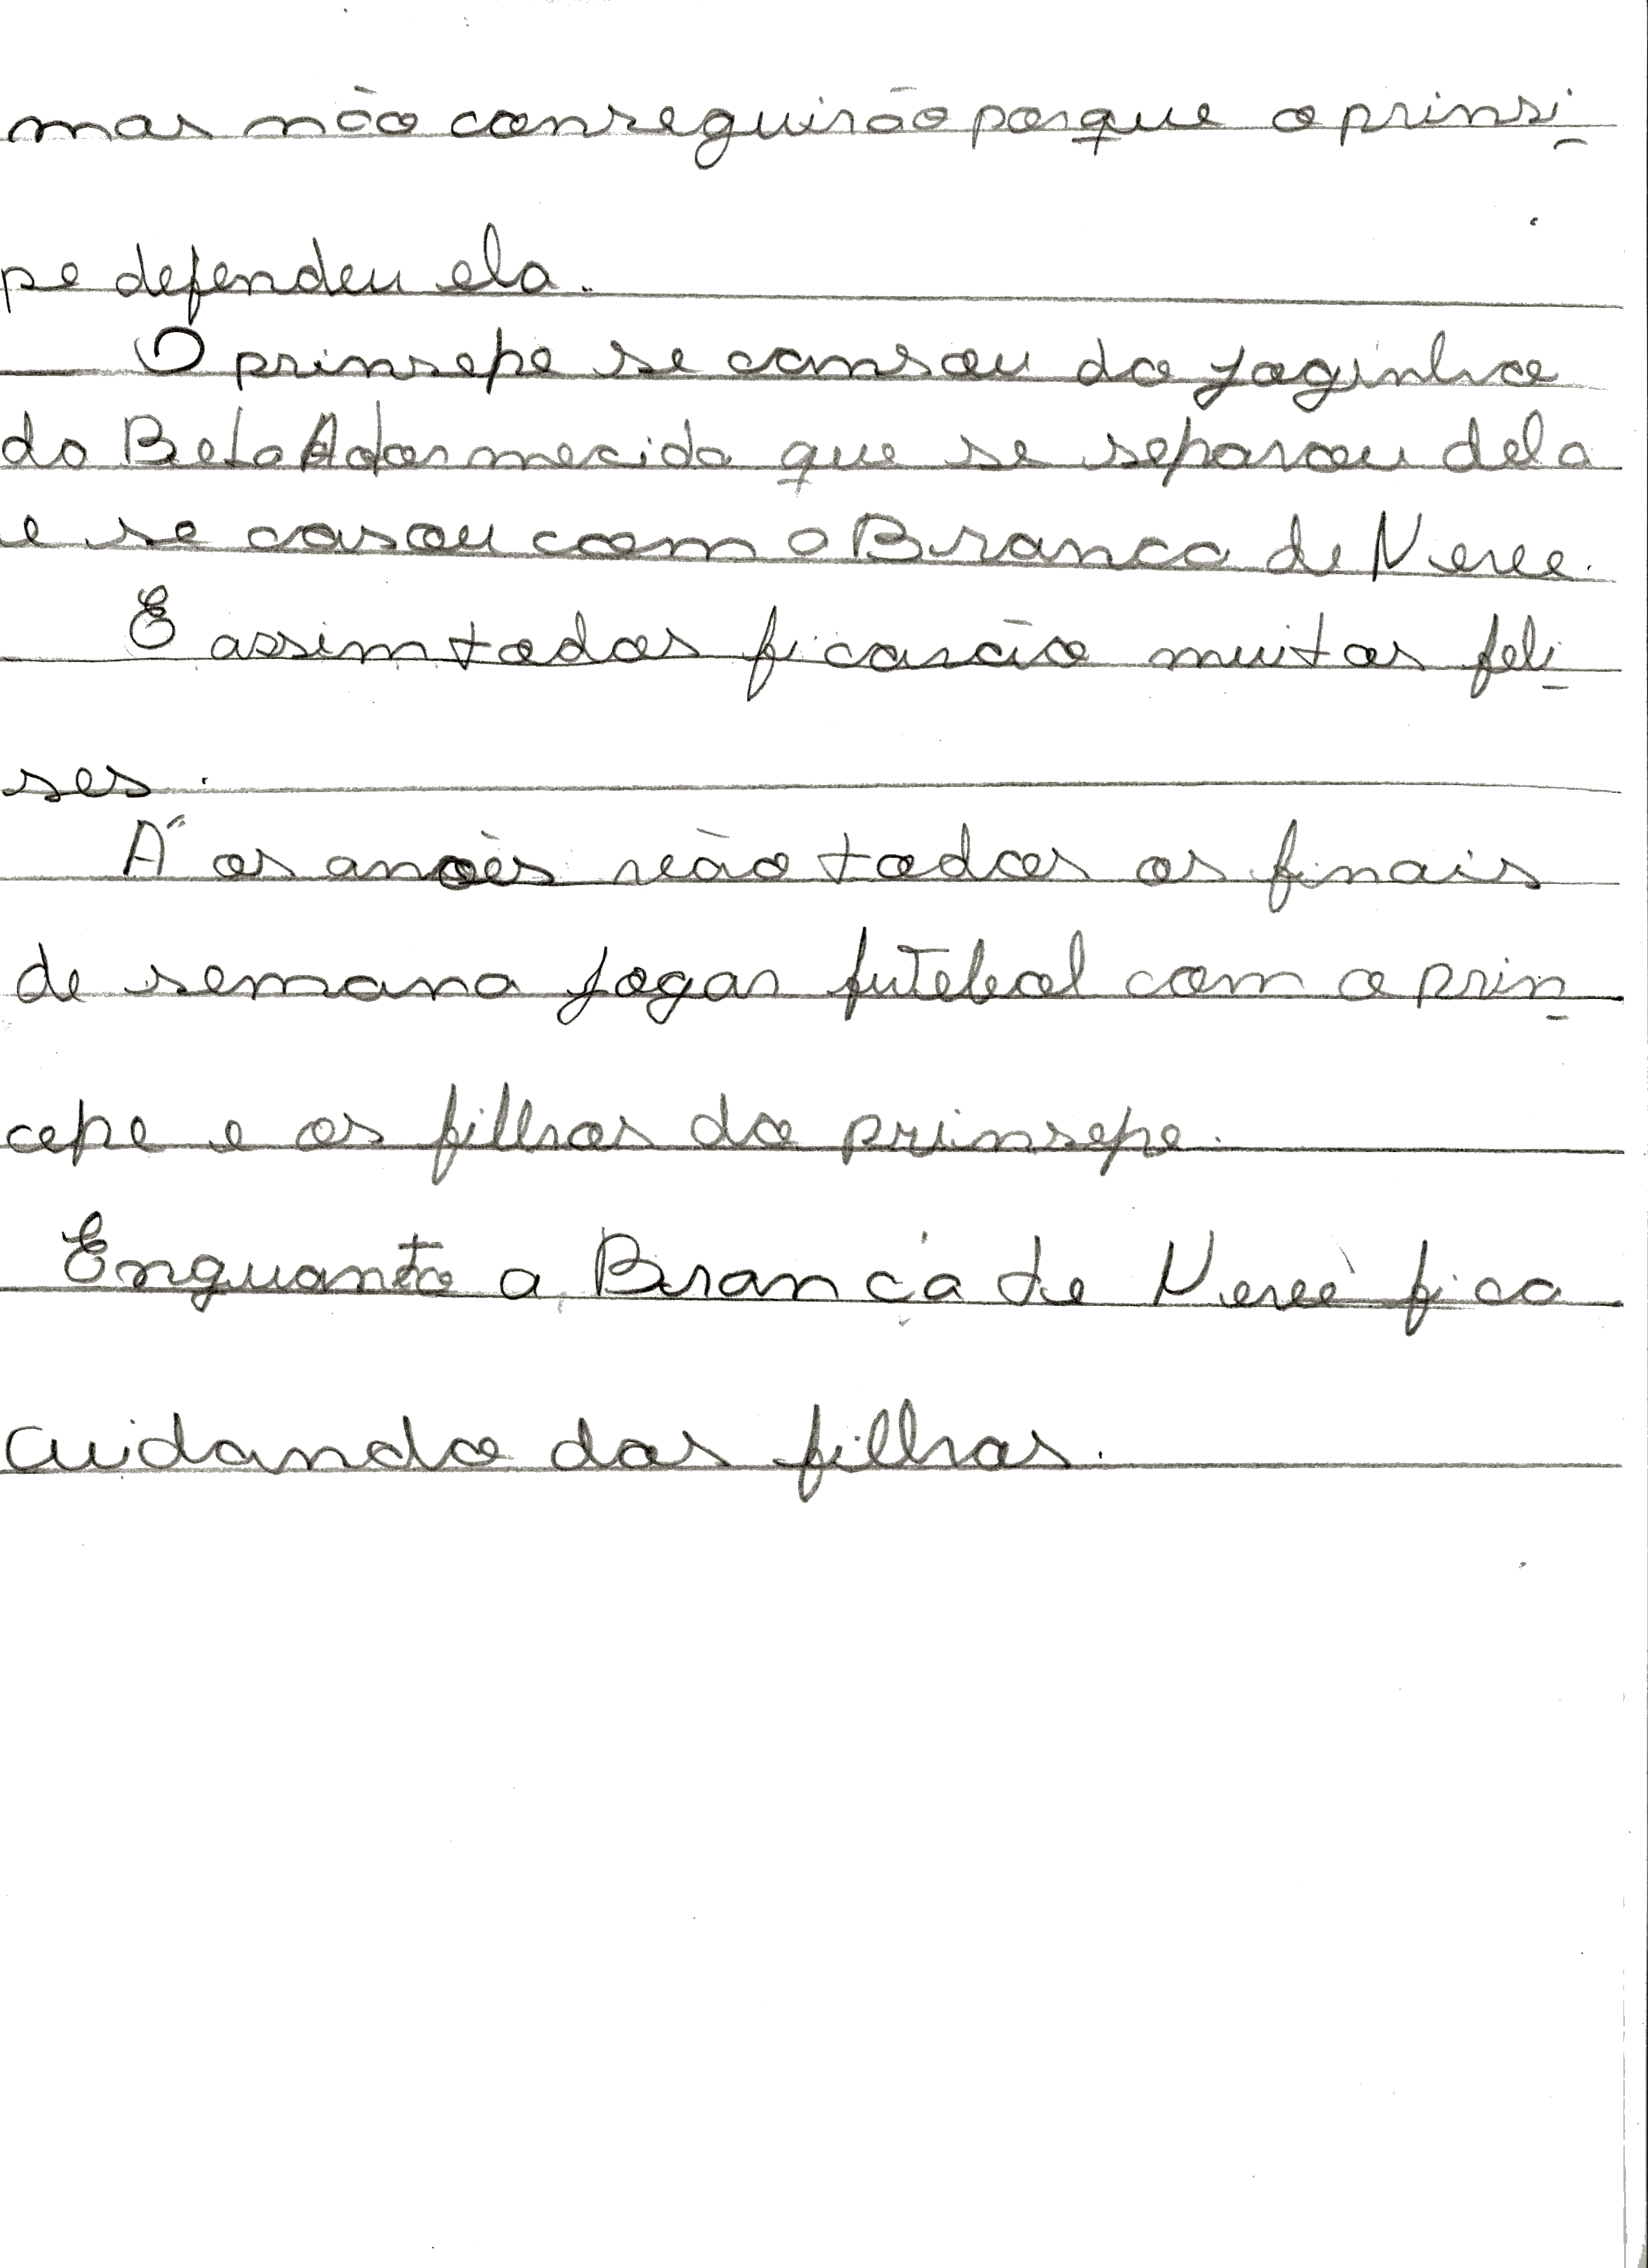 mas não conseguirão porque o prinsi
pe defendeu ela.
O prinsepe se cansou do joginho
da Bela Adormecida que se separou dela
e se casou com a Branca de Neve.
E assim todos ficarão muitos feli
ses.
A os anões vão todos os finais
de semana jogar futebol com o prin
cepe e os filhos do prinsepe.
Enquanto a Branca de Neve fica
cuidando das filhas.